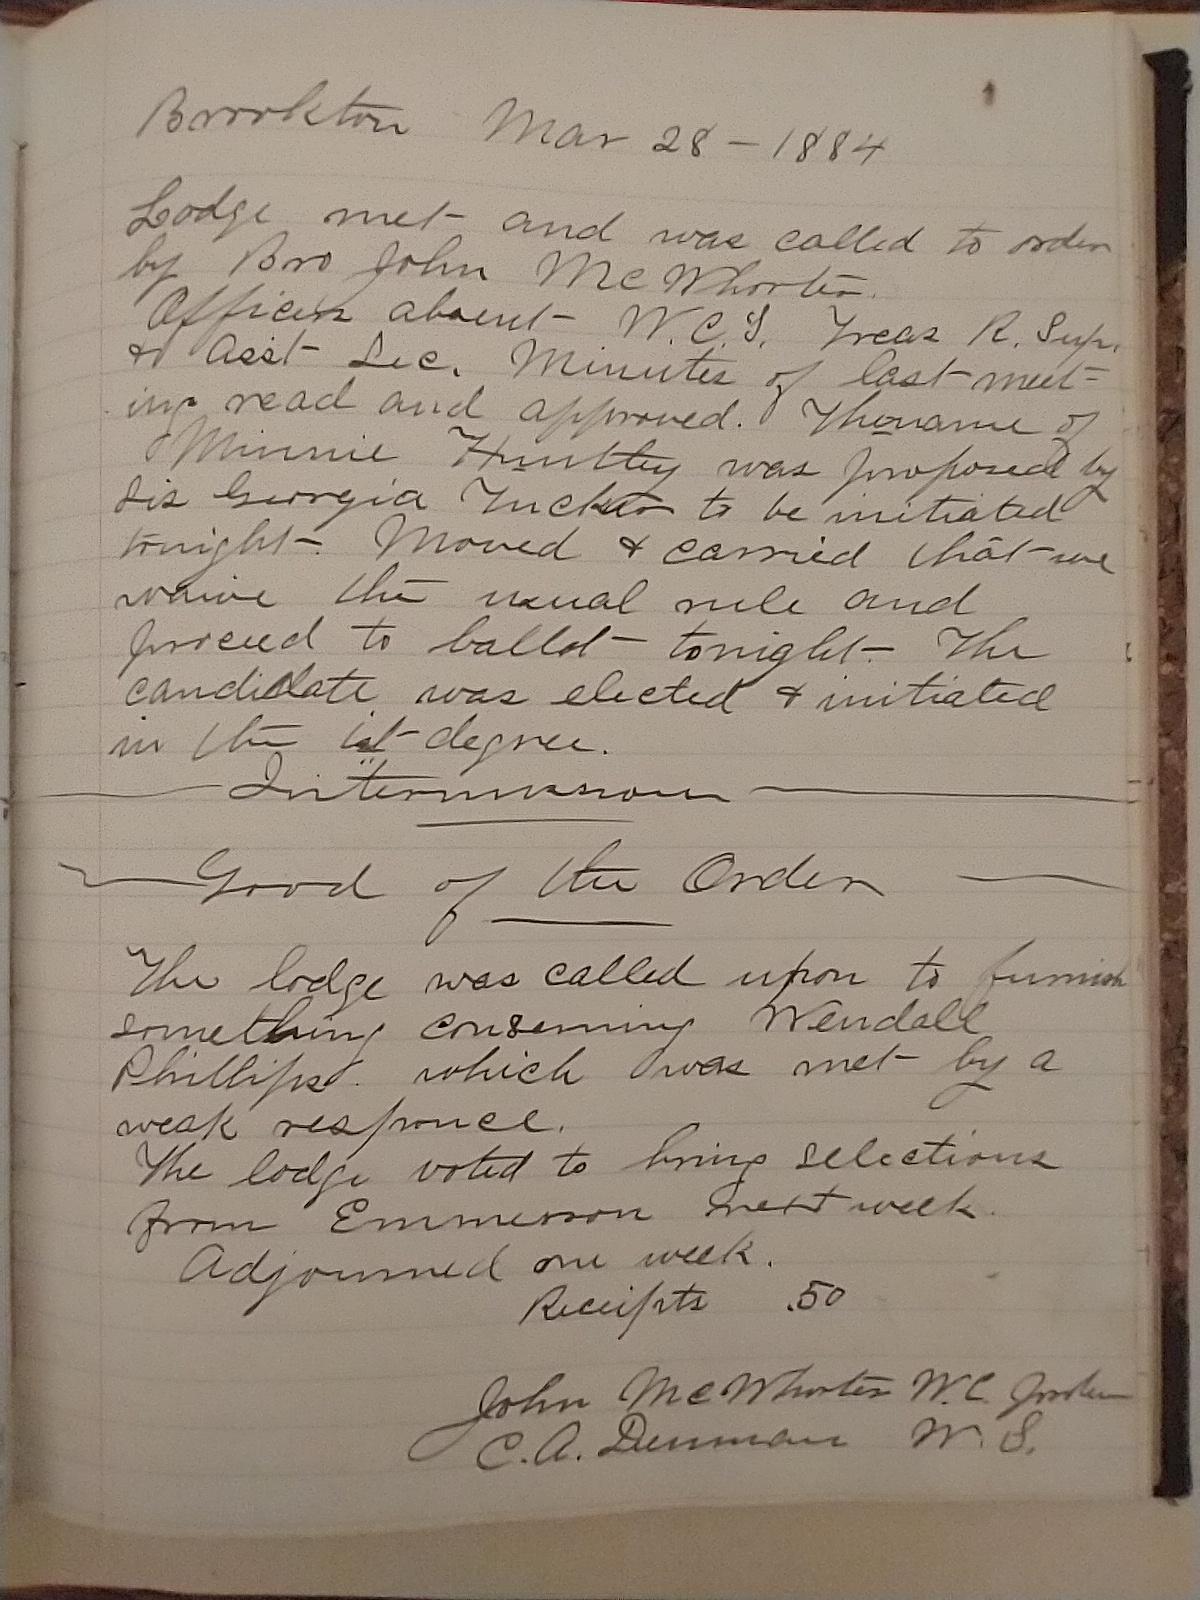 Brookton Mar 28 - 1884
Lodge met and was called to order
by Bro John McWhorter.
Officers absent W.C.T. Treas R. Sup.
& Asst Sec. Minutes of last meet=
ing read and approved. The name of
Minnie Huntley was proposed by
Sis Georgia Tucker to be initiated
tonight. Moved & carried that we
waive the usual rule and
proceed to ballot tonight. The
candidate was elected & initiated
in the 1st degree.
Intermission
Good of the Order
The lodge was called upon to furnish
something conserning Wendall
Phillips. which was met by a
weak responce.
The lodge voted to bring selections
from Emmerson next week.
Adjourned one week.
Receipts .50
John McWhorter W.C.
C.A. Denman W.S.